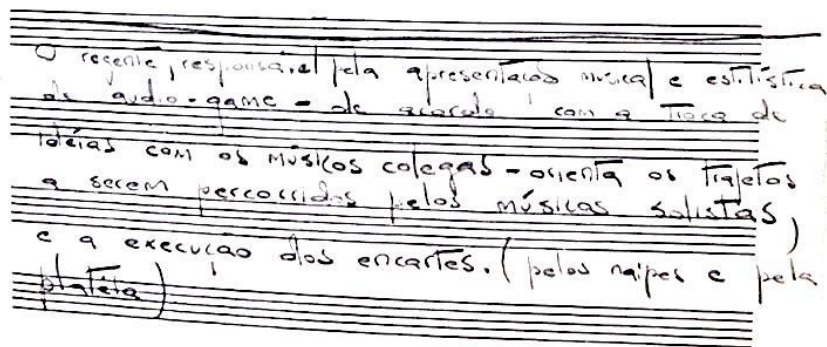 O regente, responsável pela apresentação musical e estilística
do audio-game - de acordo com a troca de
idéias com os músicos colegas - orienta os trajetos
a serem percorridos pelos músicos solistas,
e a execução dos encartes. (pelos naipes e pela
platéia)